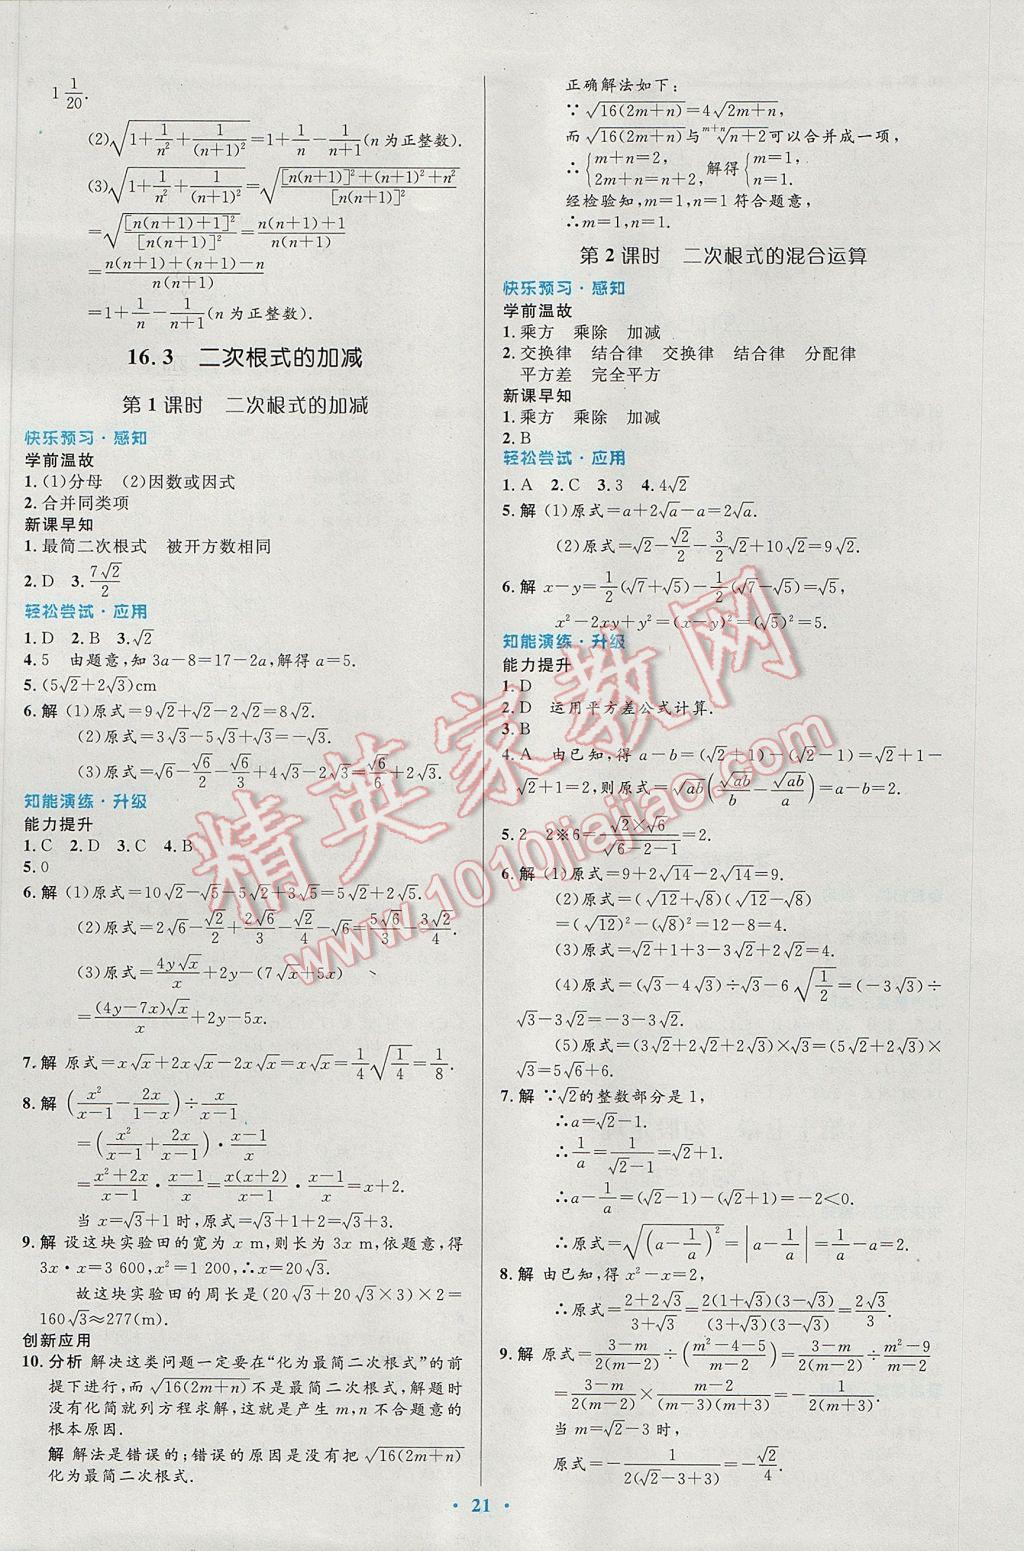 1 1/20.
(2)√(1+1/n²+1/(n+1)²)=1+1/n-1/(n+1)(n为正整数).
(3)√(1+1/n²+1/(n+1)²)=√([n(n+1)]²+(n+1)²+n²/[n(n+1)]²)
=√([n(n+1)+1]²/[n(n+1)]²)=n(n+1)+1/n(n+1)
=n(n+1)+(n+1)-n/n(n+1)
=1+1/n-1/(n+1)(n为正整数).
16.3 二次根式的加减
第1课时 二次根式的加减
快乐预习·感知
学前温故
1.(1)分母 (2)因数或因式
2.合并同类项
新课早知
1.最简二次根式 被开方数相同
2.D 3.7√2/2
轻松尝试·应用
1.D 2.B 3.√2
4.5 由题意,知3a-8=17-2a,解得a=5.
5.(5√2+2√3)cm
6.解 (1)原式=9√2+√2-2√2=8√2.
(2)原式=3√3-5√3+√3=-√3.
(3)原式=√6-√6/2-√6/3+4√3-2√3=√6/6+2√3.
知能演练·升级
能力提升
1.C 2.D 3.C 4.B
5.0
6.解 (1)原式=10√2-√5-5√2+3√5=5√2+2√5.
(2)原式=2√6-√2/2+2√6/3-√2/4-√6=5√6/3-3√2/4.
(3)原式=4y√x/x+2y-(7√x+5x)
=(4y-7x)√x/x+2y-5x.
7.解 原式=x√x+2x√x-2x√x=x√x=1/4√(1/4)=1/8.
8.解 (x²/(x-1)-2x/(1-x))÷x/(x-1)
=(x²/(x-1)+2x/(x-1))·(x-1)/x
=(x²+2x)/(x-1)·(x-1)/x=x(x+2)/(x-1)·(x-1)/x=x+2.
当x=√3+1时,原式=√3+1+2=√3+3.
9.解 设这块实验田的宽为x m,则长为3x m,依题意,得
3x·x=3 600,x²=1 200,∴x=20√3.
故这块实验田的周长是(20√3+20√3×3)×2=
160√3≈277(m).
创新应用
10.分析 解决这类问题一定要在“化为最简二次根式”的前
提下进行,而√(16(2m+n))不是最简二次根式,解题时
没有化简就列方程求解,这就是产生m,n不合题意的
根本原因.
解 解法是错误的;错误的原因是没有把√(16(2m+n))
化为最简二次根式.
正确解法如下:
∵√(16(2m+n))=4√(2m+n),
而√(16(2m+n))与ᵐ⁺ⁿ√(n+2)可以合并成一项,
∴{m+n=2, 2m+n=n+2, 解得{m=1, n=1.
经检验知,m=1,n=1符合题意,
∴m=1,n=1.
第2课时 二次根式的混合运算
快乐预习·感知
学前温故
1.乘方 乘除 加减
2.交换律 结合律 交换律 结合律 分配律
平方差 完全平方
新课早知
1.乘方 乘除 加减
2.B
轻松尝试·应用
1.A 2.C 3.3 4.4√2
5.解 (1)原式=a+2√a-a=2√a.
(2)原式=√2-√2/2-3/2√2+10√2=9√2.
6.解 x-y=1/2(√7+√5)-1/2(√7-√5)=√5,
x²-2xy+y²=(x-y)²=(√5)²=5.
知能演练·升级
能力提升
1.D
2.D 运用平方差公式计算.
3.B
4.A 由已知,得a-b=(√2+1)-(√2-1)=√2+1-
√2+1=2,则原式=√ab(√ab/b-√ab/a)=a-b=2.
5.2 2※6=√2×√6/√(6-2-1)=2.
6.解 (1)原式=9+2√14-2√14=9.
(2)原式=(√12+√8)(√12-√8)
=(√12)²-(√8)²=12-8=4.
(3)原式=√2+1+3-3√2+2√2=4.
(4)原式=(√3-4√3)÷√3-6√(1/2)=(-3√3)÷
√3-3√2=-3-3√2.
(5)原式=(3√2+2√2+2√3)×√3=(5√2+2√3)×
√3=5√6+6.
7.解 ∵√2的整数部分是1,
∴a=√2-1.
∴1/a=1/(√2-1)=√2+1.
∴a-1/a=(√2-1)-(√2+1)=-2<0.
∴原式=√((a-1/a)²)=|a-1/a|=1/a-a=2.
8.解 由已知,得x²-x=2,
∴原式=(2+2√3)/(3+√3)=2(1+√3)(3-√3)/(3+√3)(3-√3)=2√3/3.
9.解 原式=(3-m)/2(m-2)÷(m²-4-5)/(m-2)=(3-m)/2(m-2)÷(m²-9)/(m-2)
=(3-m)/2(m-2)×(m-2)/(m-3)(m+3)=-1/2(m+3).
当m=√2-3时,
原式=-1/2(√2-3+3)=-√2/4.
·21·
精英家教网
www.1010jiajiao.com